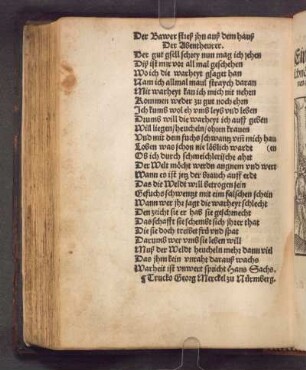 Der Bawer stieß jhn auß dem hauß
Der Abenheurer.
Der gut gsell schrey nun mag ich jehen
Diß ist mir vor all mal geschehen
Wo ich die warheyt gsaget han
Nam ich allmal maul streych daran
Mit warheyt kan ich mich nit nehen
Kommen weder zu gut noch ehrn
Ich kumb wol eh vmb leyb vnd leben
Drumb will die warheyt ich auff geben
Will liegen/heucheln/ohren krauen
Vnd mit dem fuchs schwantz vm mich hau
Loben was schon nie löblich wardt (en
Ob ich durch schmeichlerische ahrt
Der Welt möcht werden angnem vnd wert
Wann es ist jetz der brauch auff erdt
Das die Weldt will betrogen sein
Gefuchsschwentzt mit eim falschen schein
Wann wer jhr sagt die warheyt schlecht
Den zeicht sie er hab sie gschmecht
Das schafft sie schembt sich jhrer that
Die sie doch treibet frü vnd spat
Darumb wer vmb sie leben will
Muß der Weldt heucheln mehr dann viel
Das jhm kein vnraht darauß wachs
Warheit ist vnwert spricht Hans Sachs.
¶ Truckts Georg Merckel zu Nürmberg.